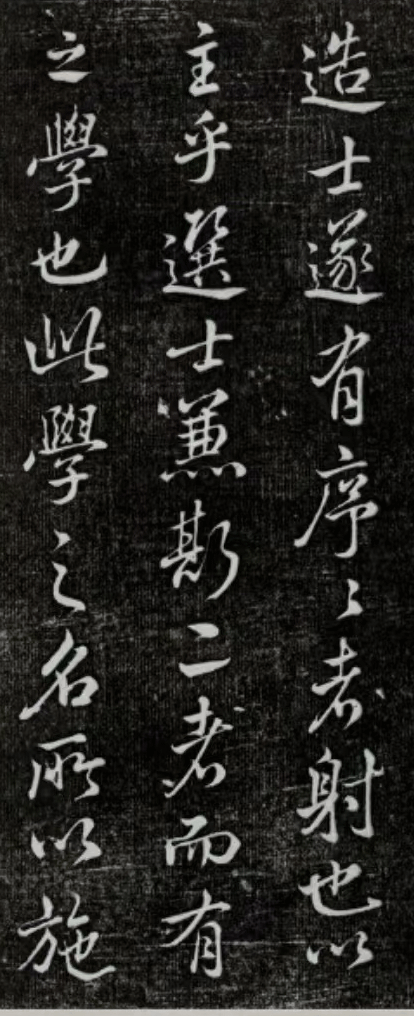 造士遂有序々者射也以
主乎選士兼斯二者而有
之學也此學之名所以施